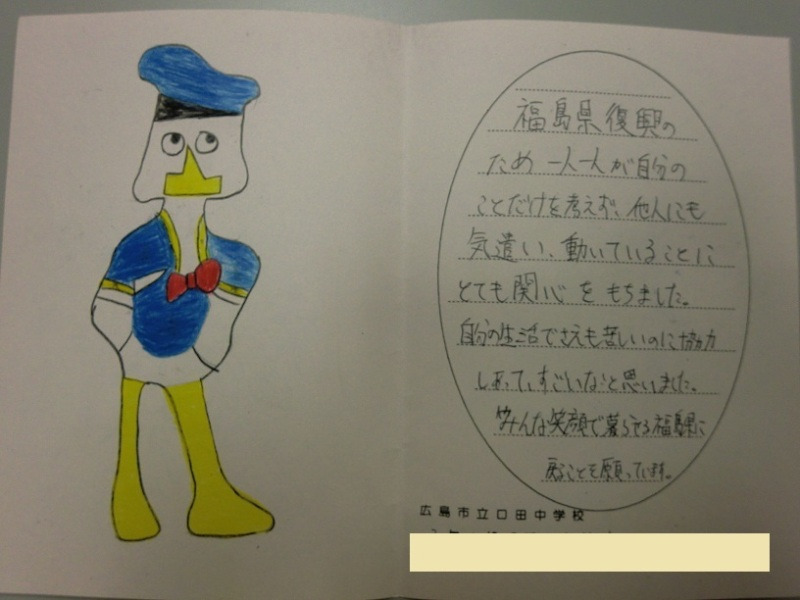 福島県復興の
ため一人一人が自分の
ことだけを考えず、他人にも
気遣い、動いていることに
とても関心をもちました。
自分の生活でさえも苦しいのに協力
しあって、すごいなと思いました。
みんな笑顔で暮らせる福島県に
戻ることを願っています。
広島市立口田中学校